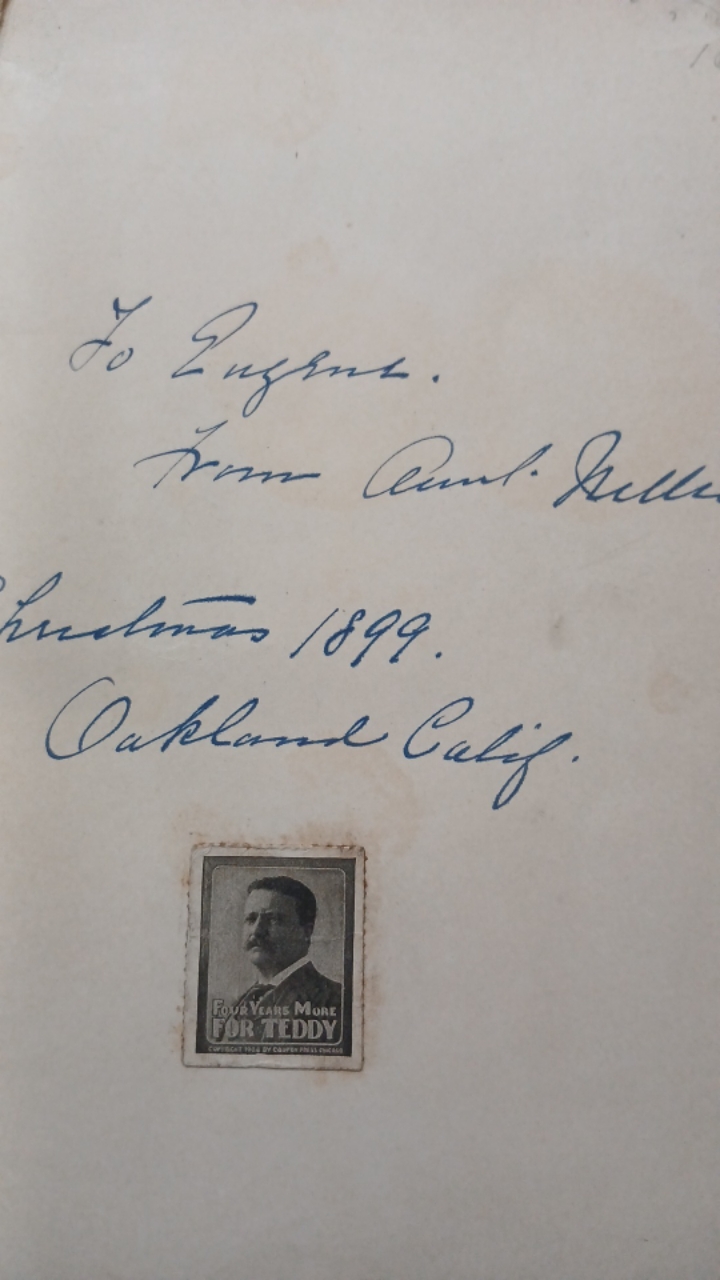 To Eugene.
From Aunt. Nellie
Christmas 1899.
Oakland Calif.
FOUR YEARS MORE
FOR TEDDY
COPYRIGHT BY PRESS CHICAGO